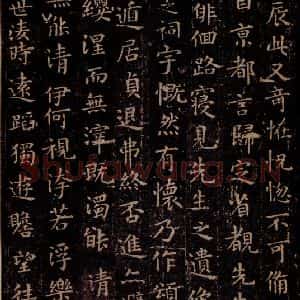 辰此又奇恠怳惚不可備
自京都言歸定省覩先
徘徊路寢見先生之遺像
之祠宇慨然有懷乃作頌
遁居貞退弗終否進亦避
纓涅而無滓既濁能清
能清伊何視汙若浮樂
世淩時遠蹈獨遊瞻望往
Shufawang.CN